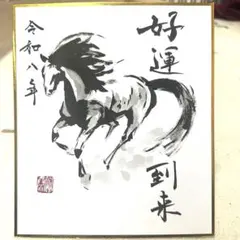 好運到来
令和八年